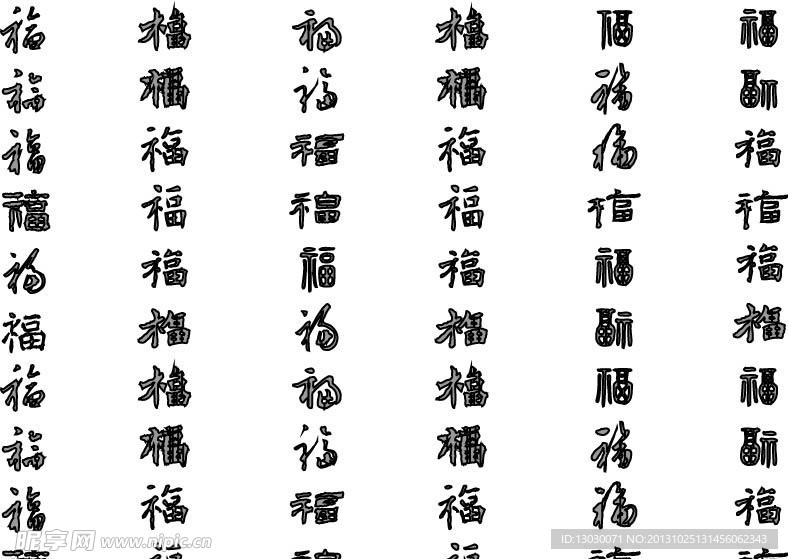 福 福 福 福 福 福
福 福 福 福 福 福
福 福 福 福 福 福
福 福 福 福 福 福
福 福 福 福 福 福
福 福 福 福 福 福
福 福 福 福 福 福
福 福 福 福 福 福
福 福 福 福 福 福
昵享网 www.nipic.cn
ID:13030071 NO:20131025131456062343